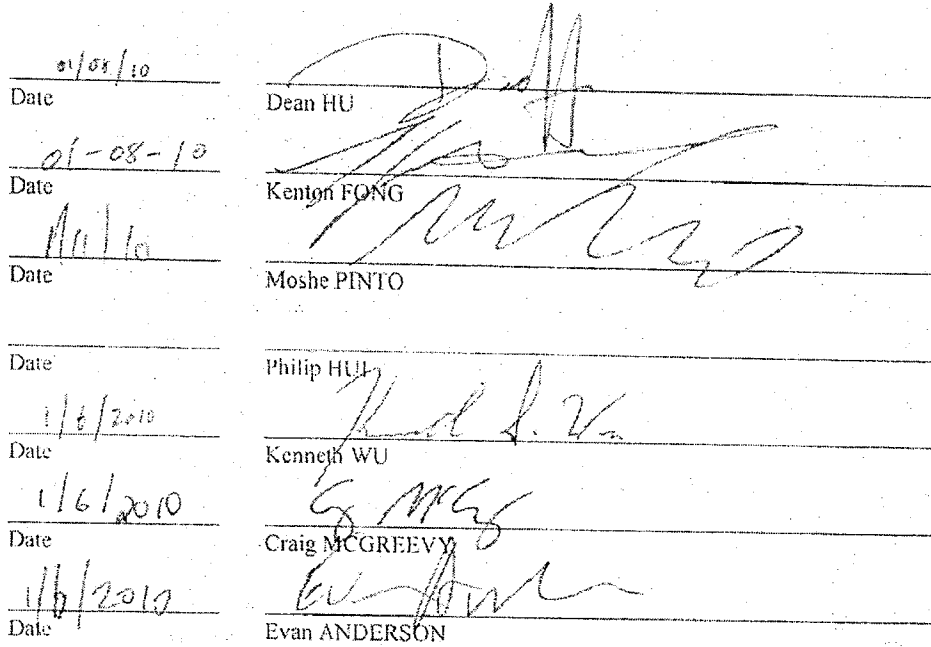 01/08/10
Date Dean HU
01-08-10
Date Kenton FONG
1/11/10
Date Moshe PINTO
Date Philip HUI
1/6/2010
Date Kenneth WU
1/6/2010
Date Craig MCGREEVY
1/6/2010
Date Evan ANDERSON